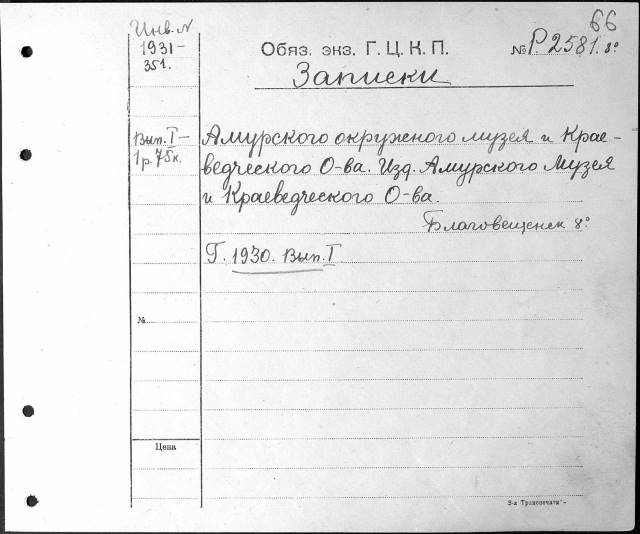 66
Инв. N
1931-
351.
Обяз. экз. Г. Ц. К. П.
№ Р.2581. 8°
Записки
Вып. I-
1р. 75к.
Амурского окружного музея и Крае-
ведческого О-ва. Изд. Амурского Музея
и Краеведческого О-ва.
Благовещенск 8°
Г. 1930. Вып. I
№
Цена
3-я Транспечати"-